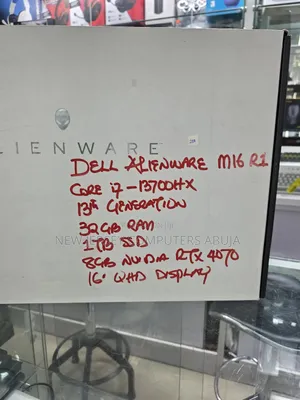 ALIENWARE
DELL ALIENWARE M16 R1
CORE i7-13700HX
13th GENERATION
32GB RAM
1TB SSD
8GB NVIDIA RTX 4070
16" QHD DISPLAY